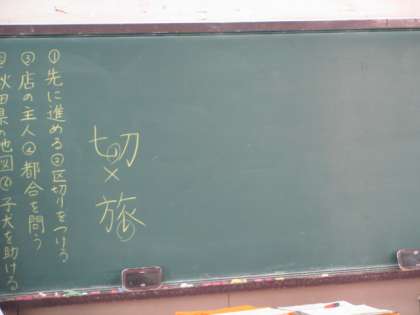 ①先に進める②区切りをつける
③店の主人④都合を問う
⑤秋田県の地図⑥子犬を助ける
切
×
旅